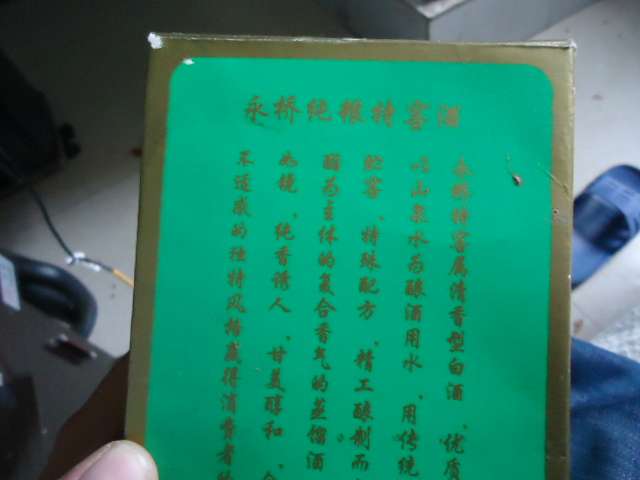 永桥纯粮特窖酒
永桥特窖属清香型白酒,优质
以山泉水为酿酒用水,用传统
蛇窖,特殊配方,精工酿制而
酯为主体的复合香气的蒸馏酒
如烧,纯香诱人,甘美醇和,
不适感的独特风格赢得消费者